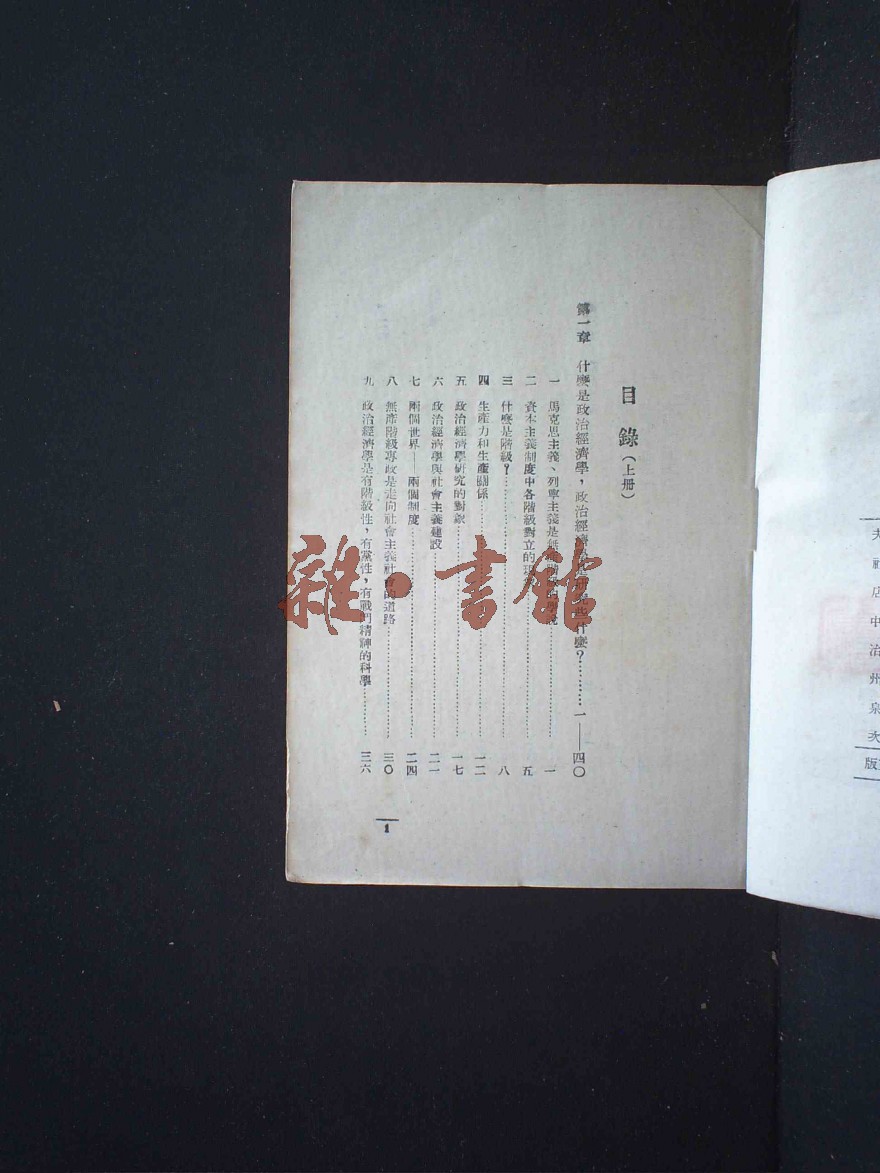 目錄（上册）
第一章 什麼是政治經濟學，政治經濟學研究些什麼？………一——四〇
一 馬克思主義、列寧主義是無產階級的學說………一
二 資本主義制度中各階級對立的………五
三 什麼是階級？………八
四 生產力和生產關係………一二
五 政治經濟學研究的對象………一七
六 政治經濟學與社會主義建設………二一
七 兩個世界——兩個制度………二四
八 無產階級專政是走向社會主義社會的道路………三〇
九 政治經濟學是有階級性，有黨性，有戰鬥精神的科學………三六
1
雜·書館
夫
社
店
中
冶
州
泉
次
版